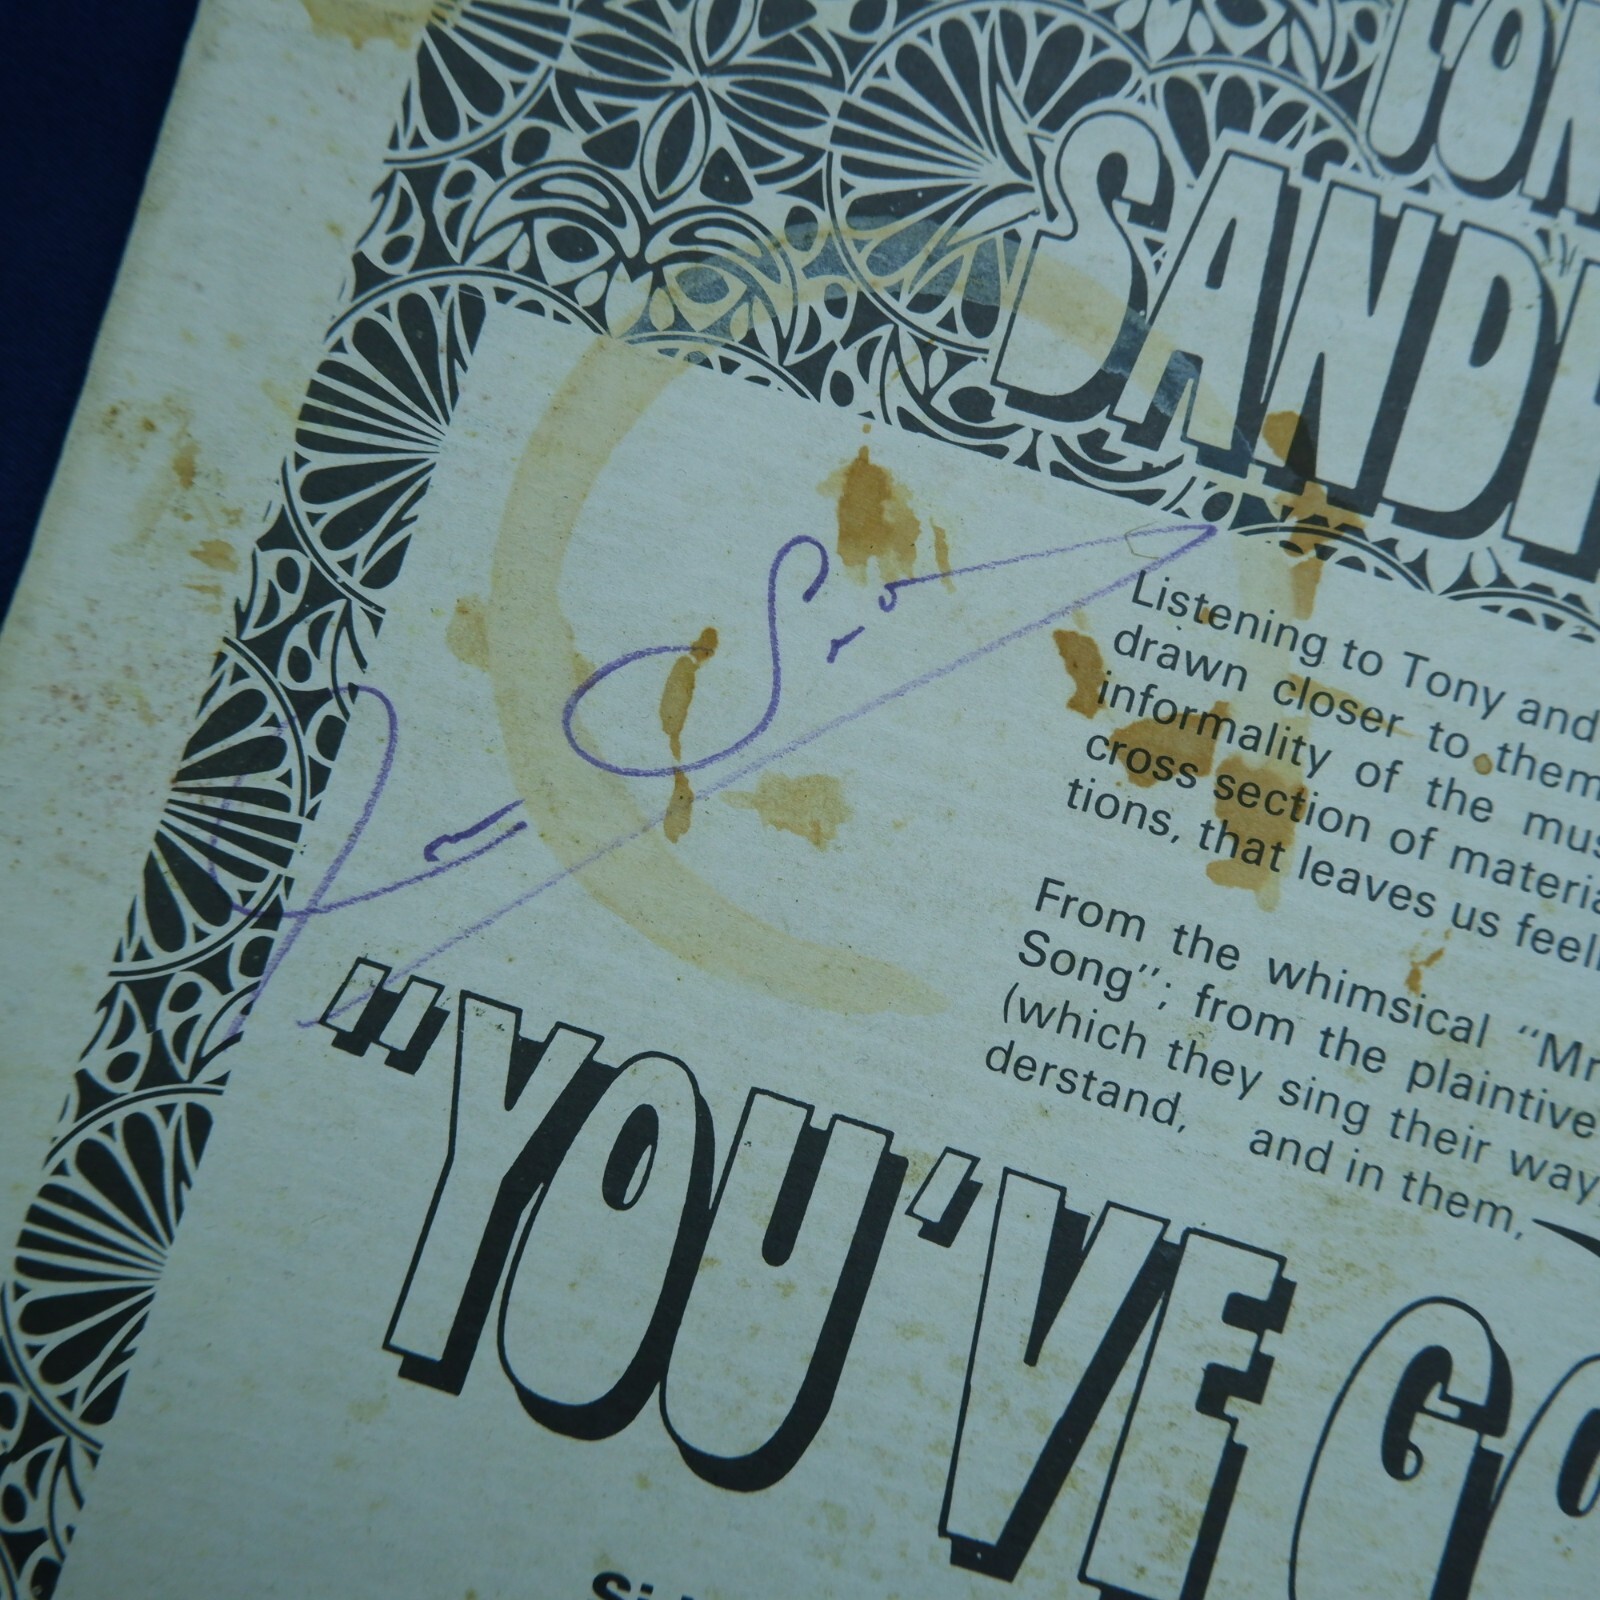 SAND
Listening to Tony and
drawn closer to them
informality of the mus
cross section of materia
tions, that leaves us feel
From the whimsical “Mr
Song”; from the plaintive
(which they sing their way,
derstand, and in them,
“YOU’VE GO
Sid